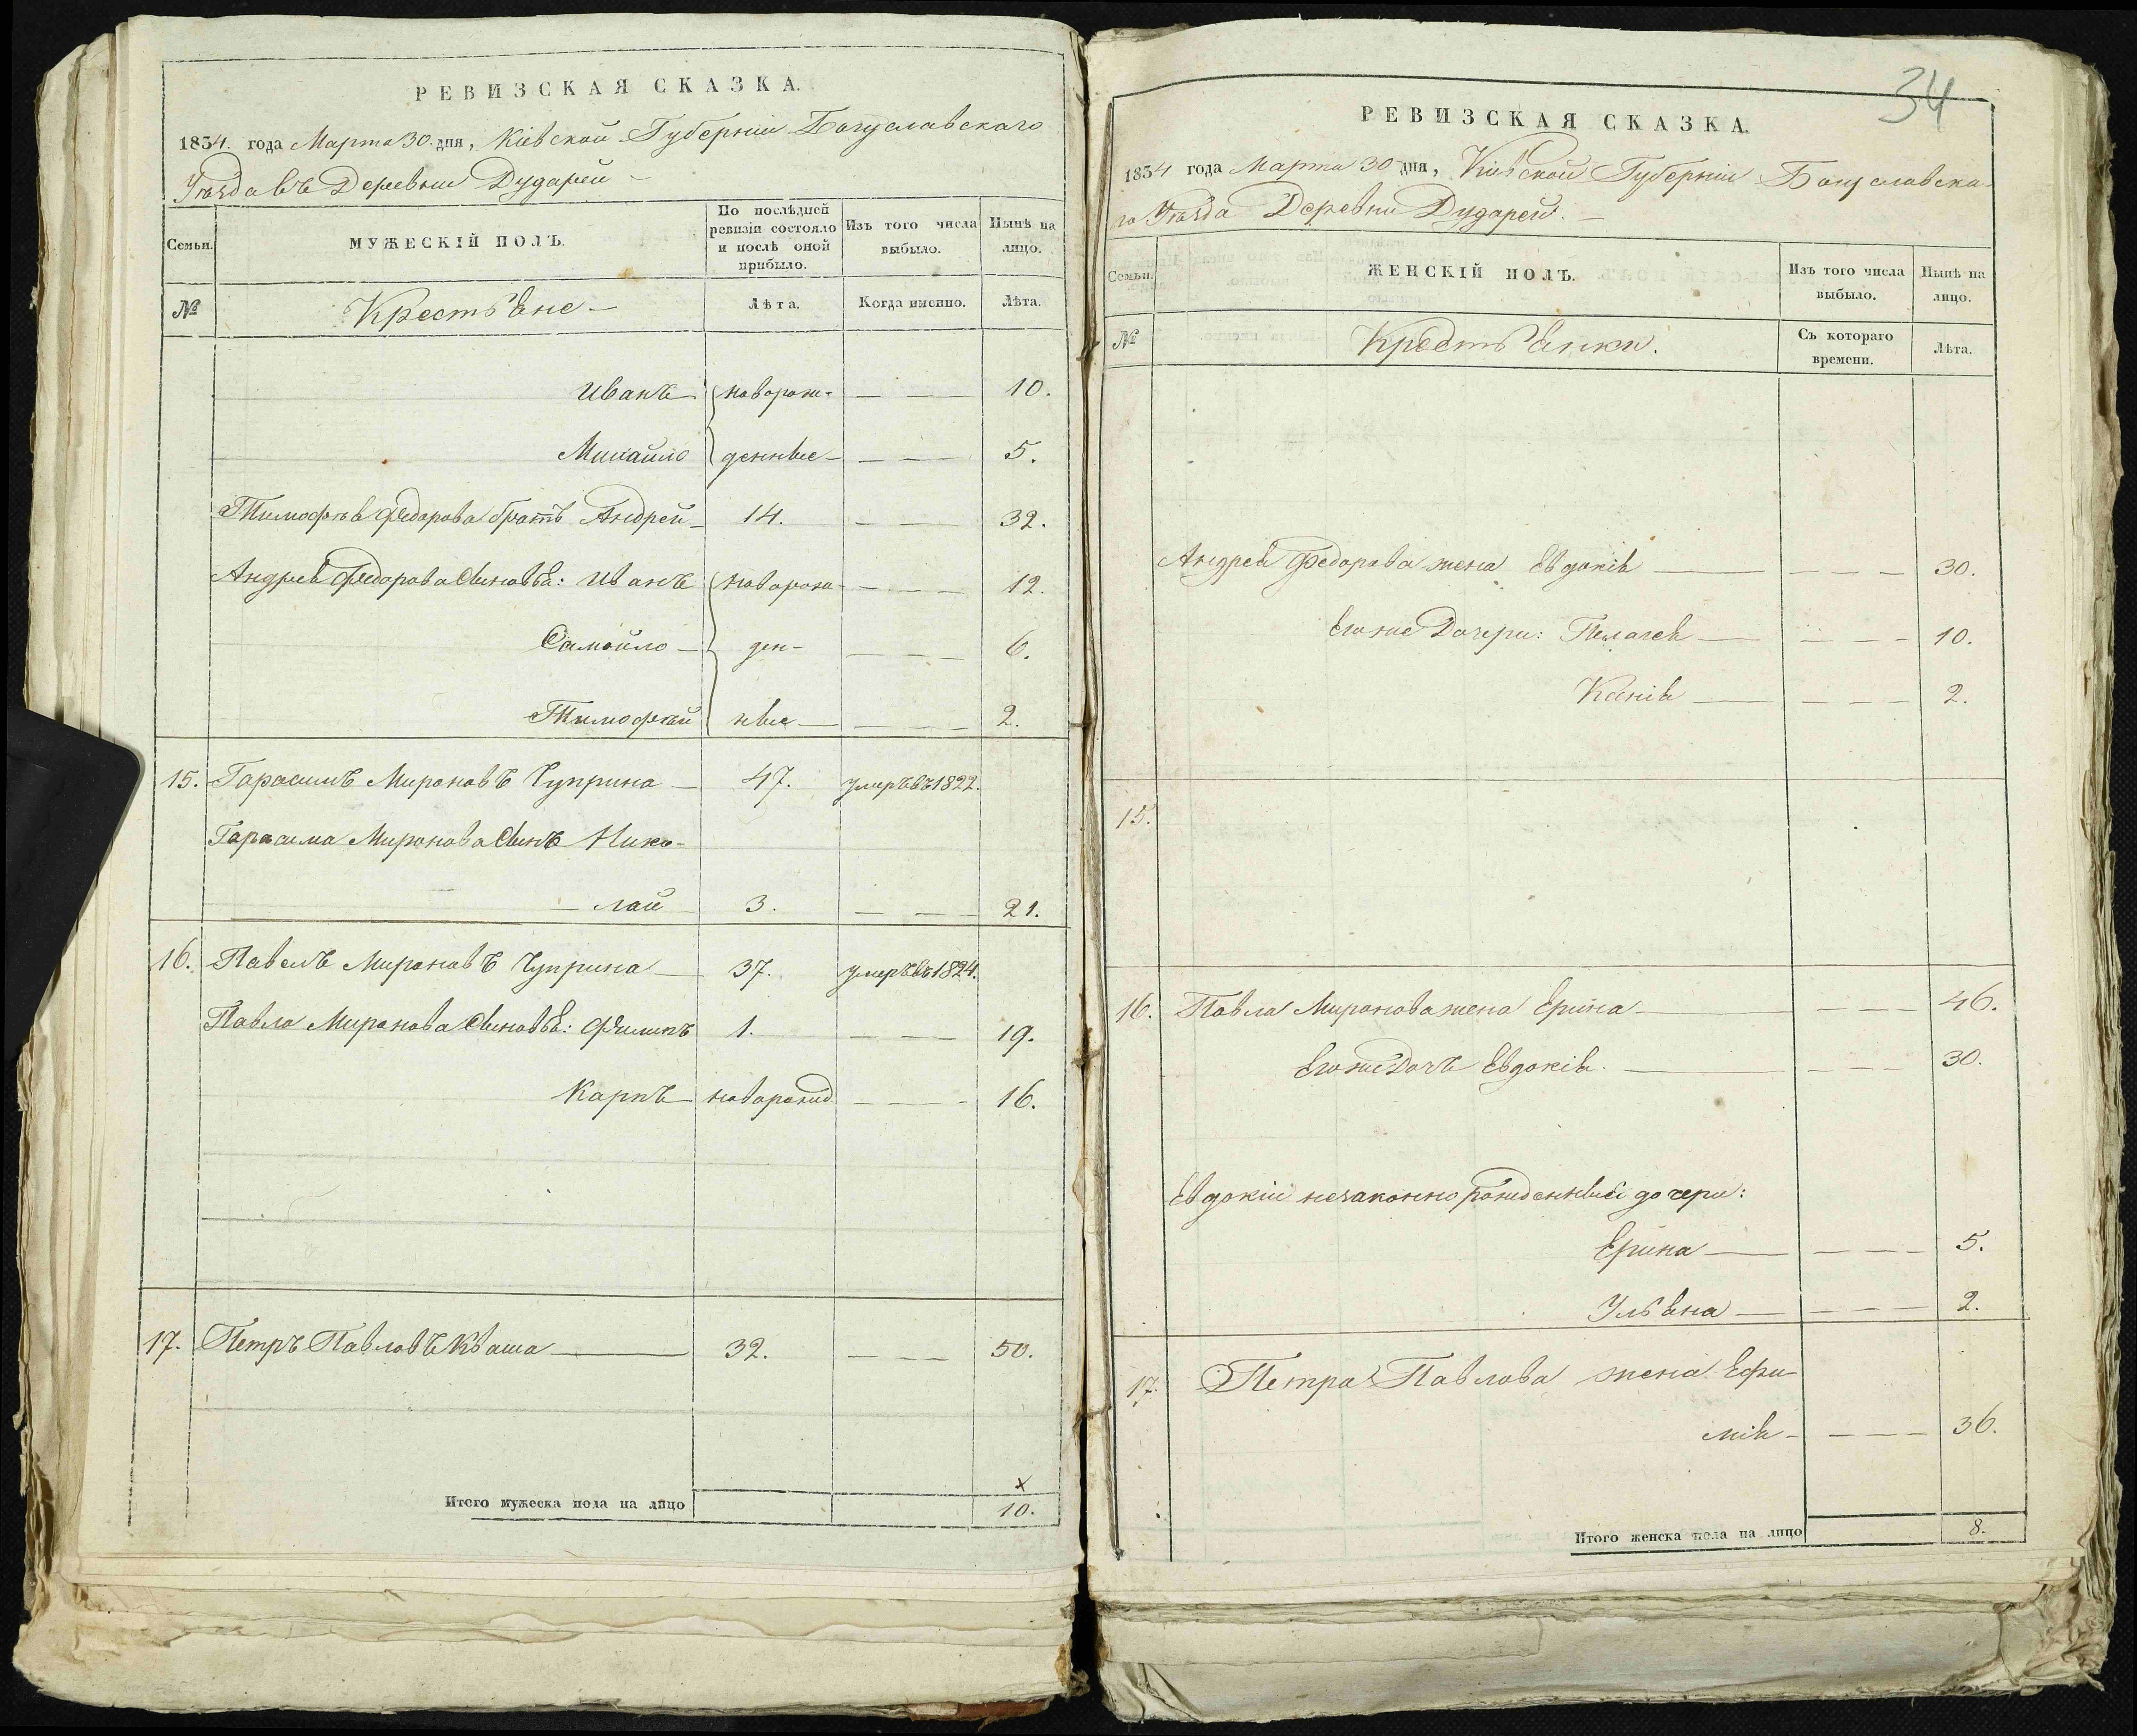 РЕВИЗСКАЯ СКАЗКА.
1834. года Марта 30. дня, Кіевской Губерніи Богуславскаго
Уѣзда въ Деревни Дударей
Семьи.
МУЖЕСКІЙ ПОЛЪ.
По послѣдней ревизіи состояло и послѣ оной прибыло.
Изъ того числа выбыло.
Нынѣ на лицо.
№
Крестьяне
Лѣта.
Когда именно.
Лѣта.
Иванъ новорож- 10.
Михайло денные 5.
Тимофѣя Федорова братъ Андрей 14. 32.
Андрея Федорова Сыновья: Иванъ новорож- 12.
Самойло ден- 6.
Тимофѣй ные 2.
15. Гарасимъ Мироновъ Чуприна 47. умеръ въ 1822.
Гарасима Миронова Сынъ Нико-
лай 3. 21.
16. Павелъ Мироновъ Чуприна 37. умеръ въ 1824.
Павла Миронова Сыновья: Филипъ 1. 19.
Карпъ новорожд. 16.
17. Петръ Павловъ Кваша 32. 50.
х
Итого мужеска пола на лицо 10.
34
РЕВИЗСКАЯ СКАЗКА.
1834 года Марта 30 дня, Кіевской Губерніи Богуславска-
го Уѣзда Деревни Дударей.
Семьи.
ЖЕНСКІЙ ПОЛЪ.
Изъ того числа выбыло.
Нынѣ на лицо.
№
Крестьянки.
Съ котораго времени.
Лѣта.
Андрея Федорова жена Евдокія 30.
Его же Дочери: Пелагея 10.
Ксенія 2.
15.
16. Павла Миронова жена Ерина 46.
Его же Дочь Евдокія. 30.
Евдокіи незаконнорожденныя дочери:
Ерина 5.
Ульяна 2.
17. Петра Павлова жена Ефи-
мія 36.
Итого женска пола на лицо 8.